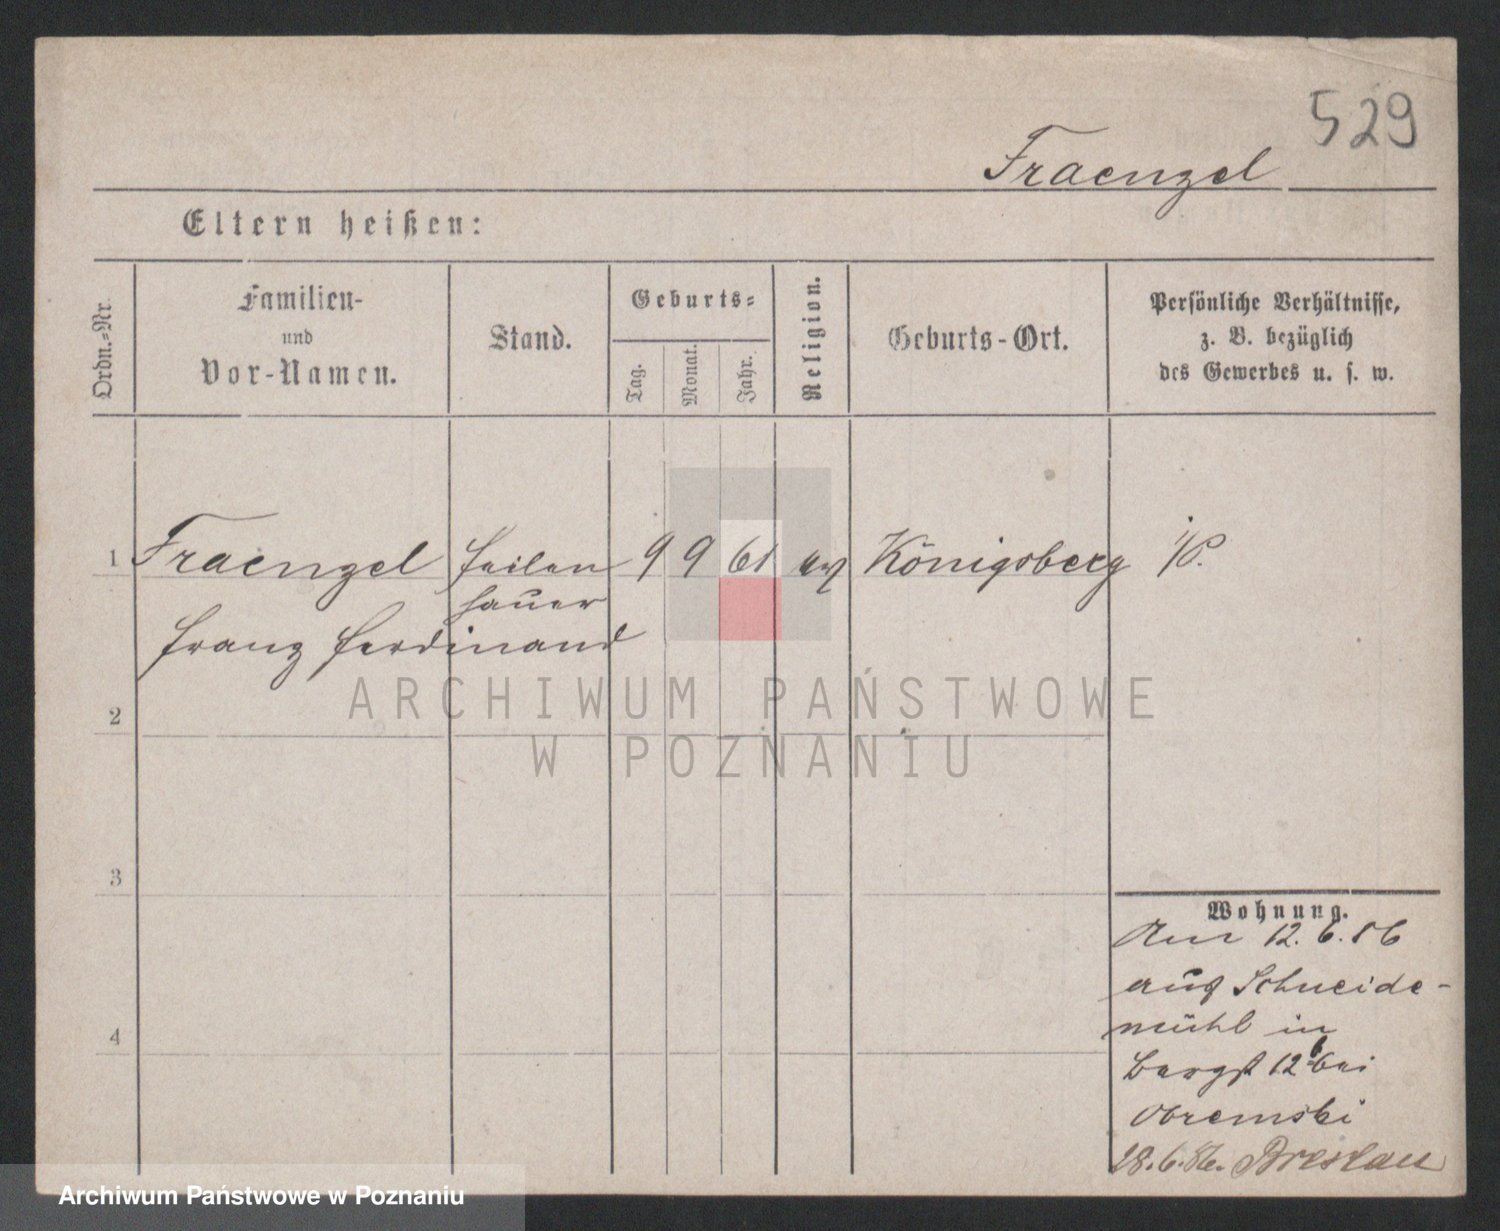 529
Fraenzel
Eltern heißen:
Ordn.-Nr.
Familien-
und
Vor-Namen.
Stand.
Geburts-
Tag.
Monat.
Jahr.
Religion.
Geburts-Ort.
Persönliche Verhältnisse,
z. B. bezüglich
des Gewerbes u. s. w.
1 Fraenzel Feilen 9 9 61 ev Königsberg i/P.
hauer
Franz Ferdinand
ARCHIWUM PAŃSTWOWE
2
W POZNANIU
3
Wohnung.
Am 12.6.86
aus Schneide-
mühl in
4
Bergst 12b bei
Obremski
28.6.86. Breslau
Archiwum Państwowe w Poznaniu